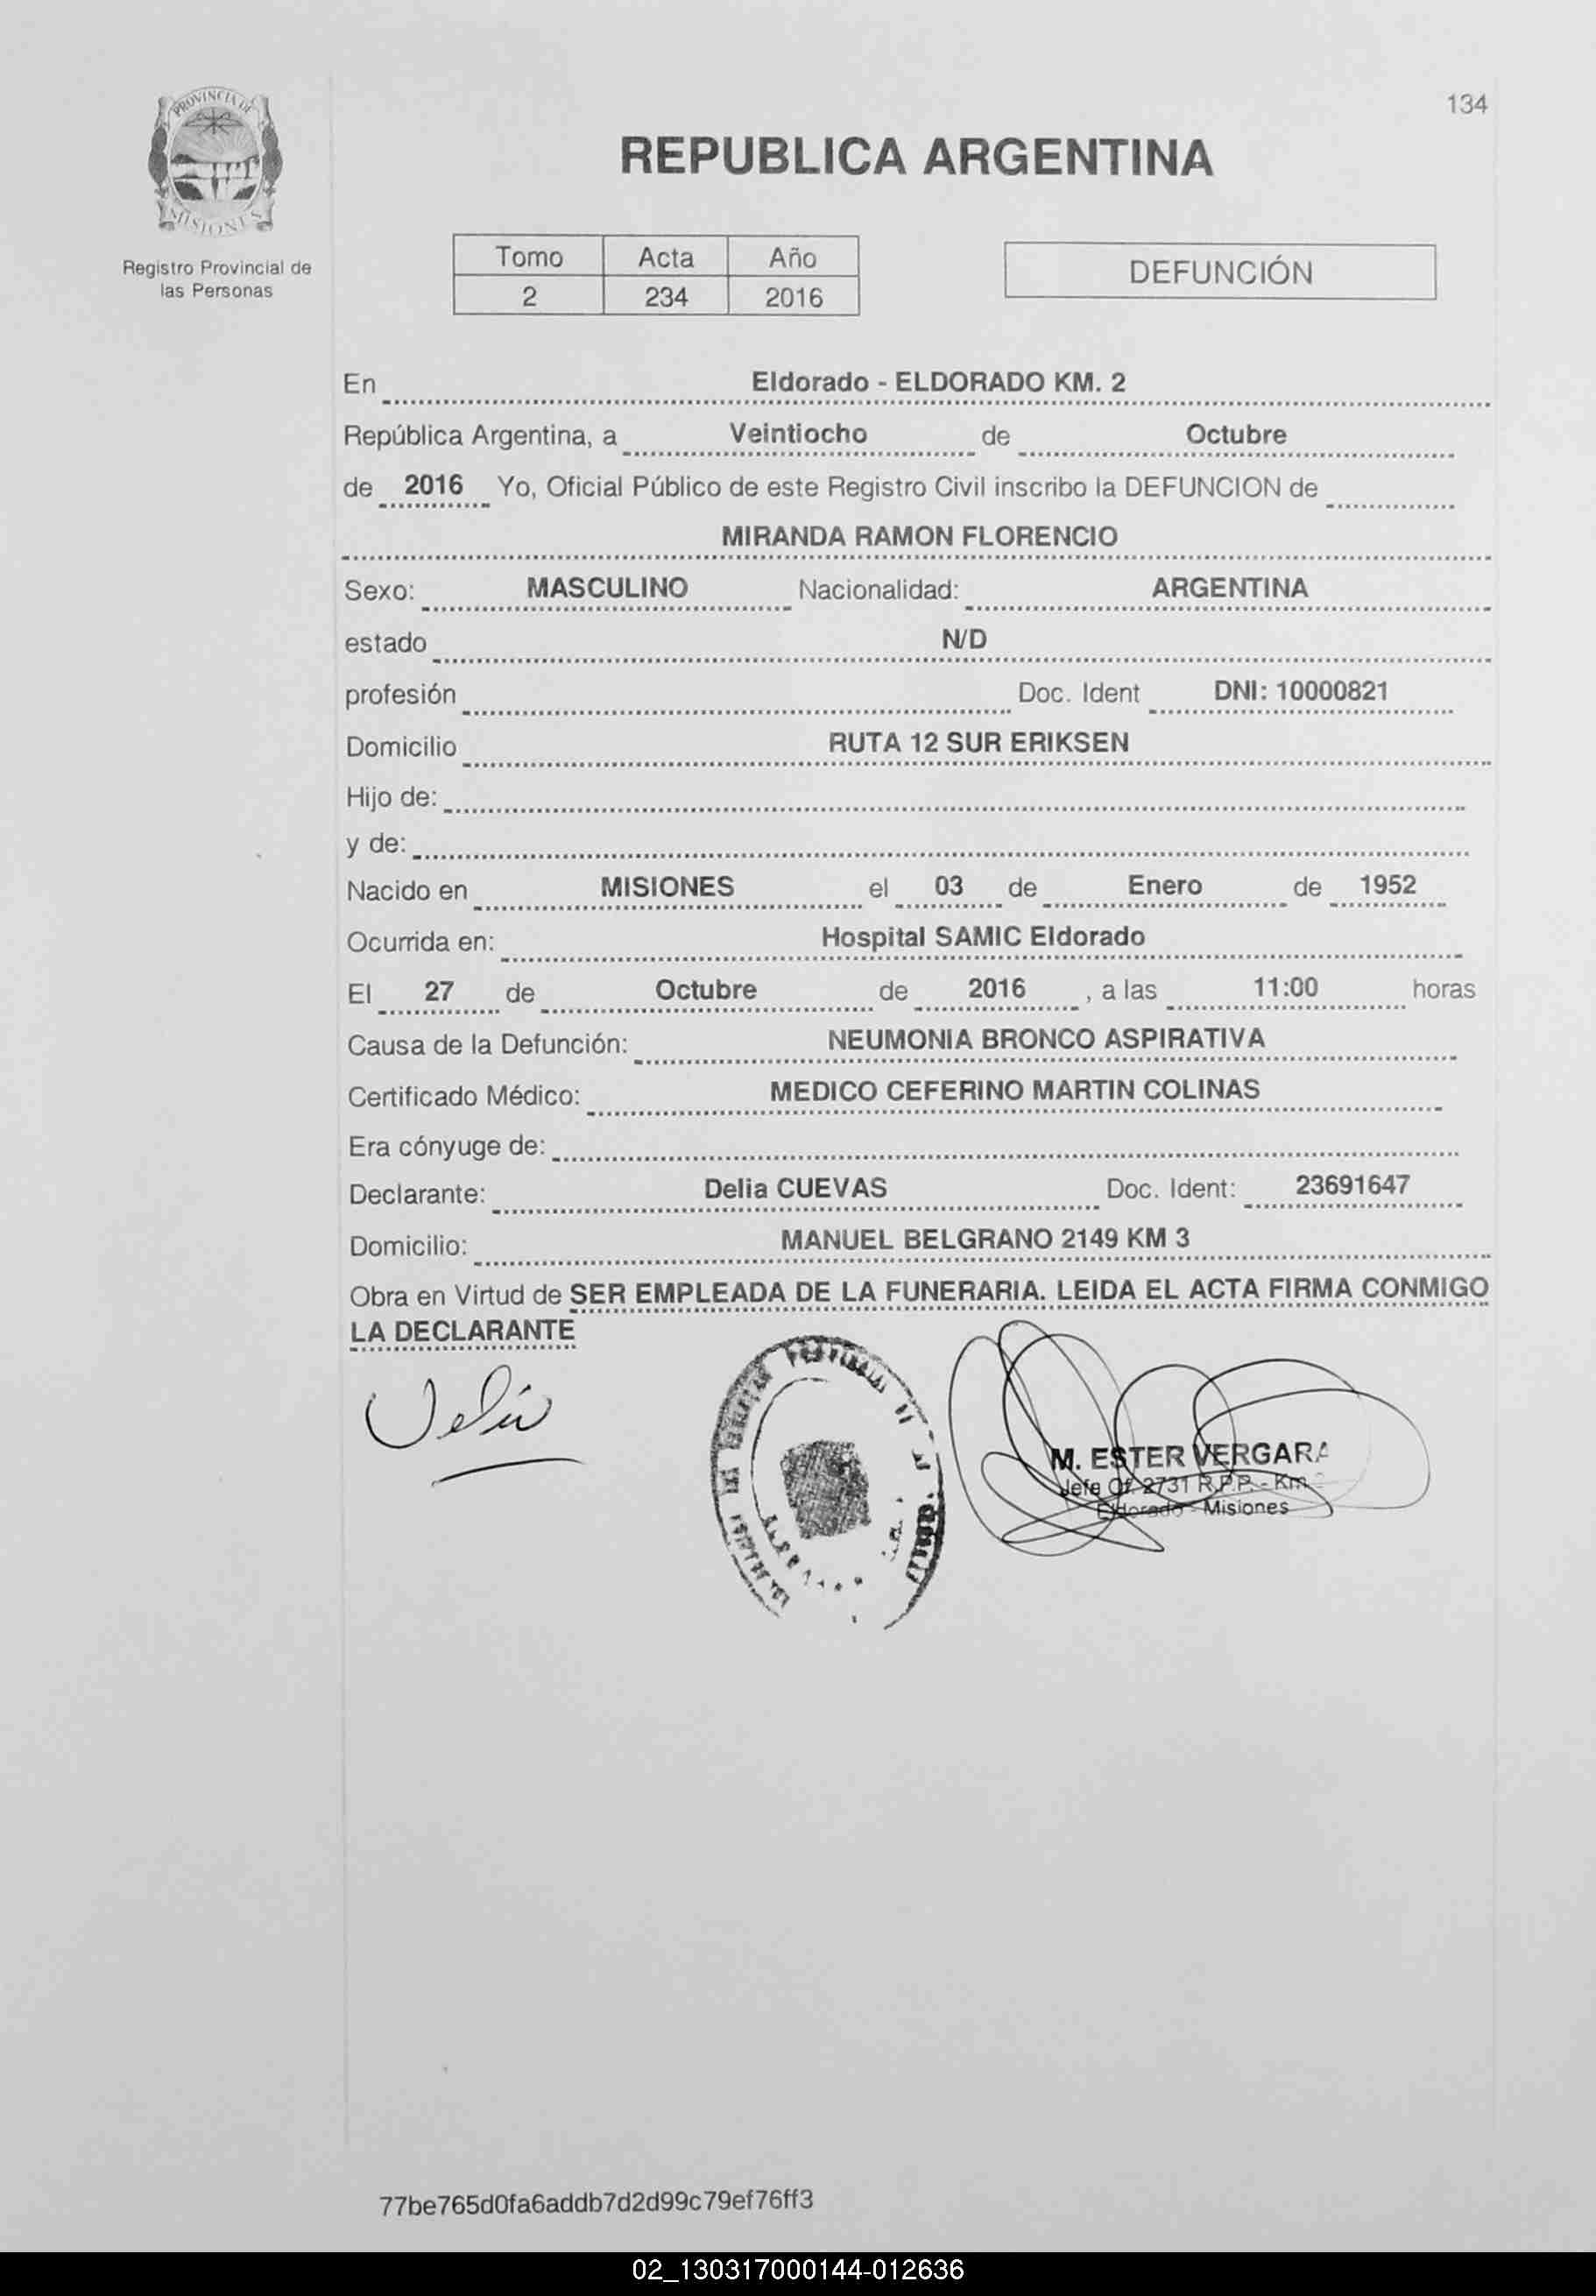 134
PROVINCIA DE
MISIONES
REPUBLICA ARGENTINA
Registro Provincial de
las Personas
Tomo Acta Año
2 234 2016
DEFUNCIÓN
En Eldorado - ELDORADO KM. 2
República Argentina, a Veintiocho de Octubre
de 2016 Yo, Oficial Público de este Registro Civil inscribo la DEFUNCION de
MIRANDA RAMON FLORENCIO
Sexo: MASCULINO Nacionalidad: ARGENTINA
estado N/D
profesión Doc. Ident DNI: 10000821
Domicilio RUTA 12 SUR ERIKSEN
Hijo de:
y de:
Nacido en MISIONES el 03 de Enero de 1952
Ocurrida en: Hospital SAMIC Eldorado
El 27 de Octubre de 2016 , a las 11:00 horas
Causa de la Defunción: NEUMONIA BRONCO ASPIRATIVA
Certificado Médico: MEDICO CEFERINO MARTIN COLINAS
Era cónyuge de:
Declarante: Delia CUEVAS Doc. Ident: 23691647
Domicilio: MANUEL BELGRANO 2149 KM 3
Obra en Virtud de SER EMPLEADA DE LA FUNERARIA. LEIDA EL ACTA FIRMA CONMIGO
LA DECLARANTE
Delia
M. ESTER VERGARA
Jefe Of. 2731 R.P.P. - Km
Eldorado - Misiones
77be765d0fa6addb7d2d99c79ef76ff3
02_130317000144-012636